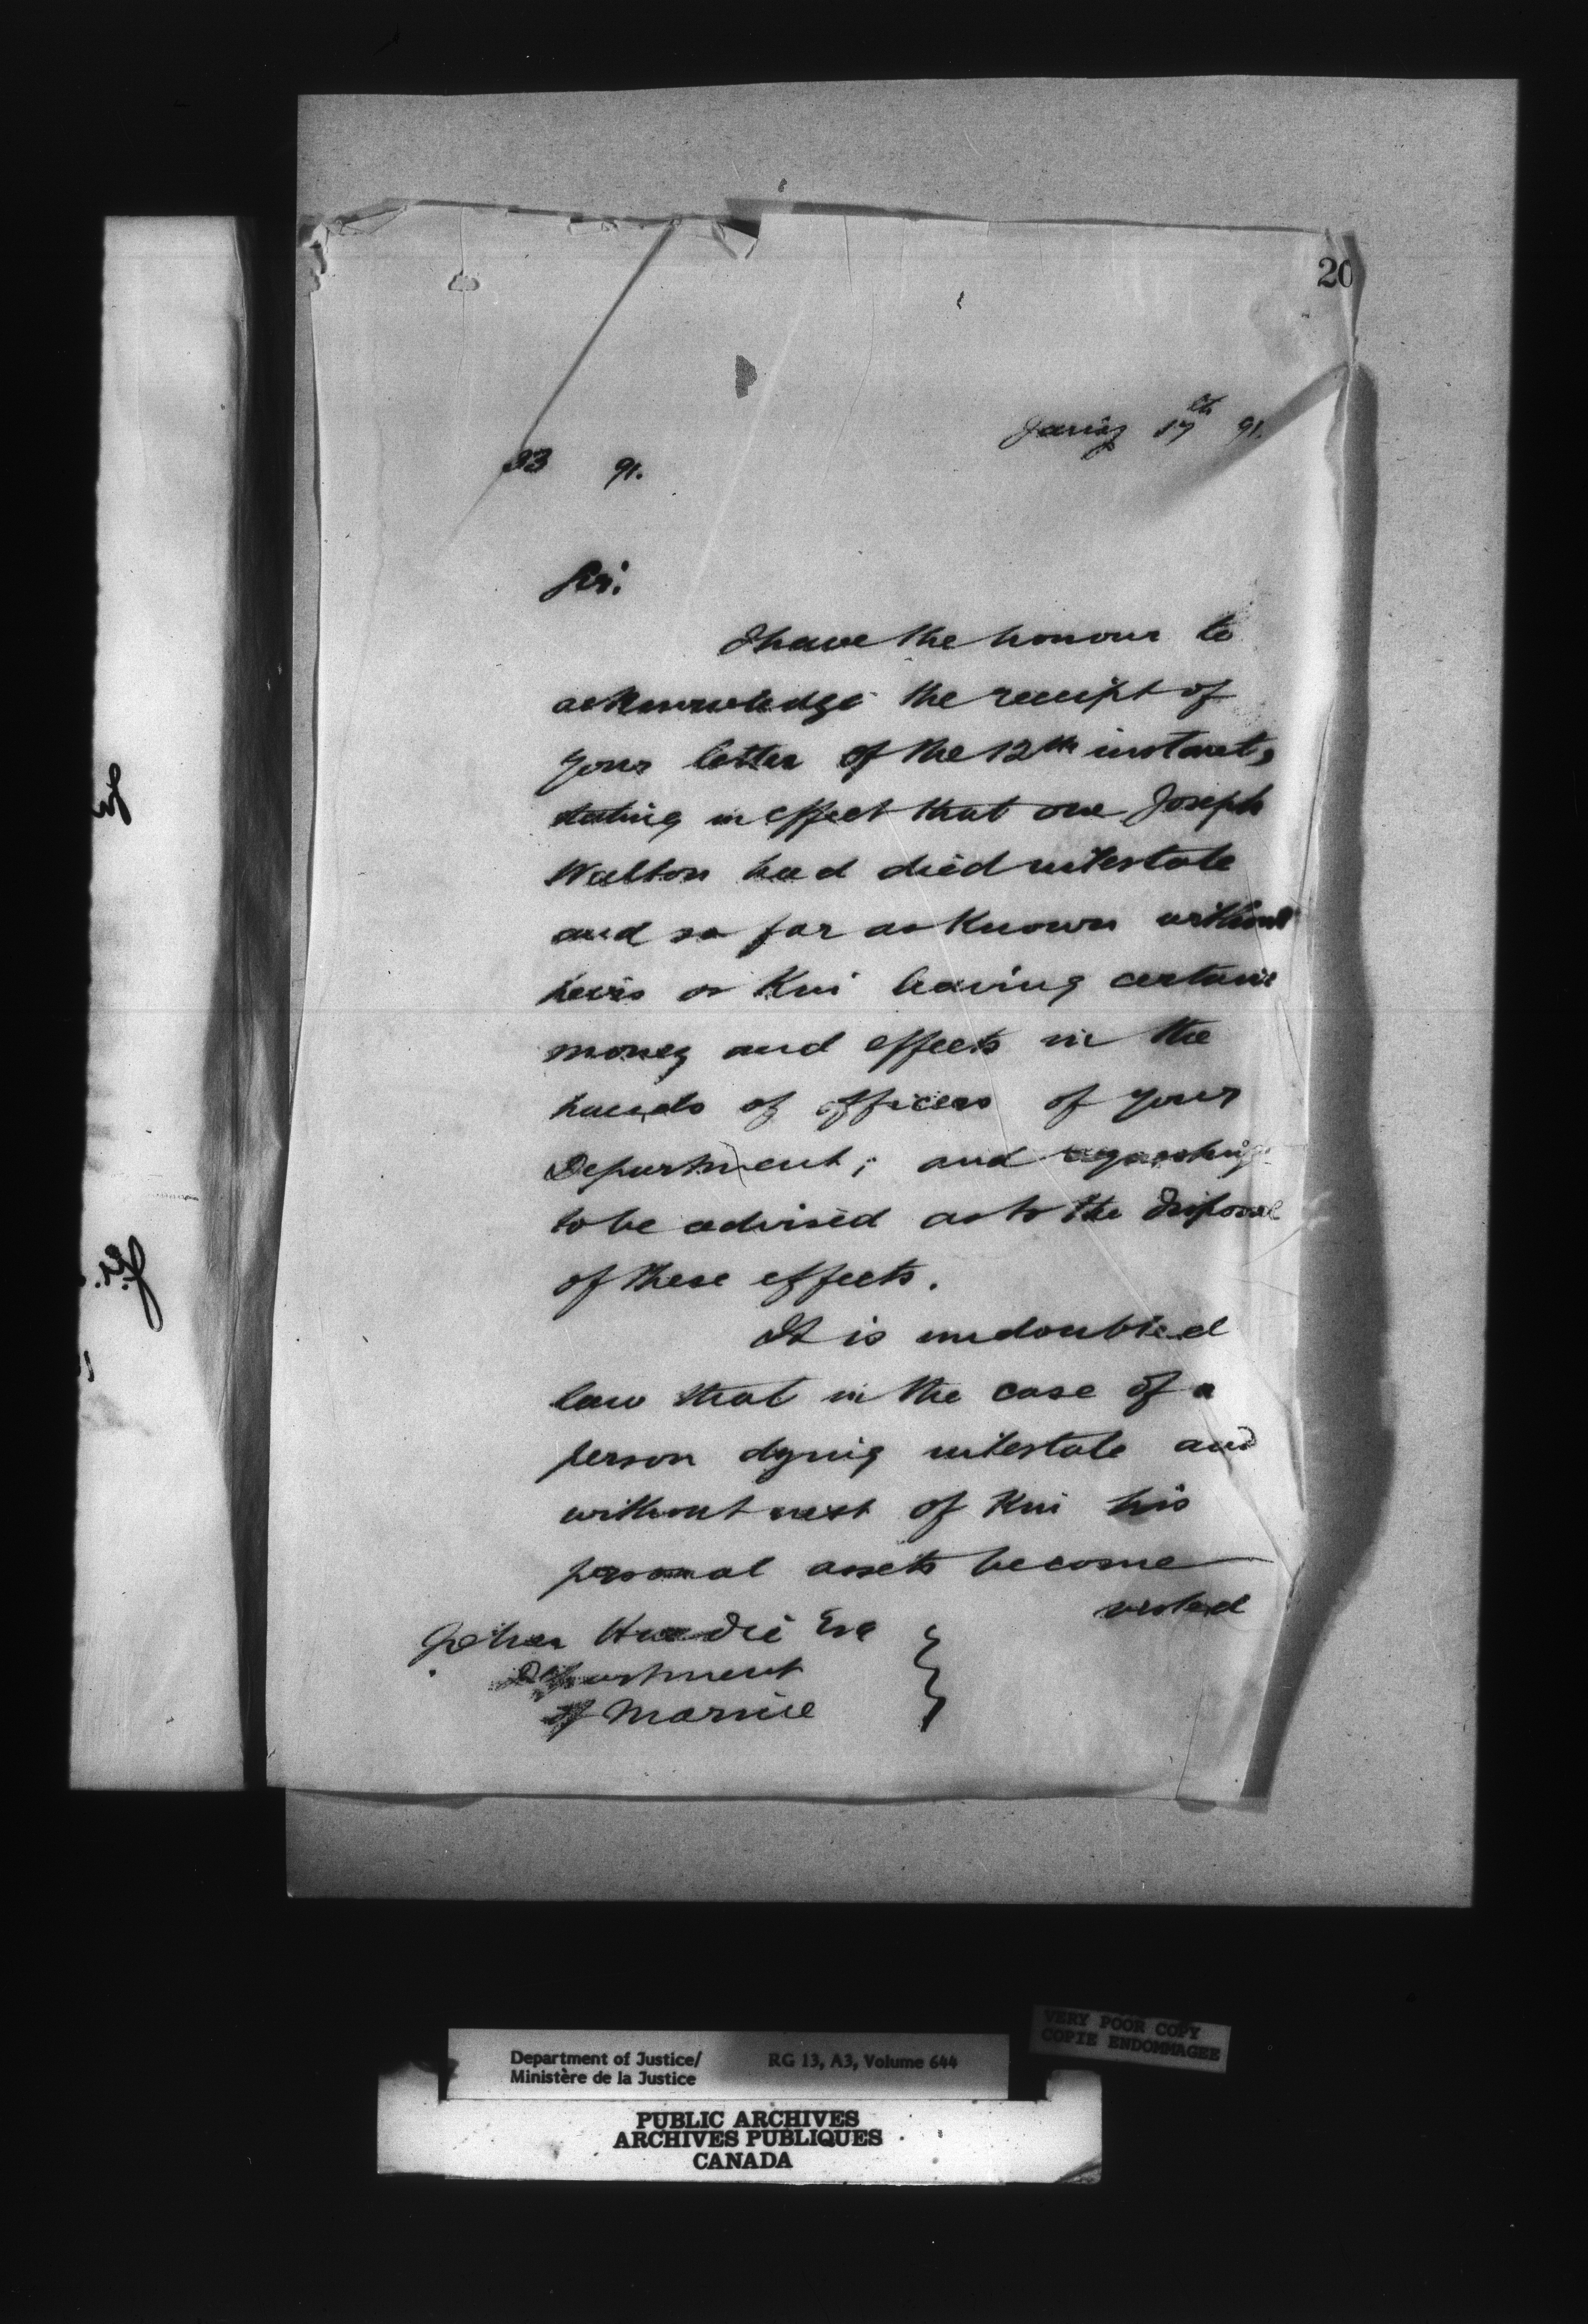 20
Jan'y 17th 91.
33 91.
Sir:
I have the honour to
acknowledge the receipt of
your letter of the 12th instant,
stating in effect that one Joseph
Walton had died intestate
and so far as known without
heirs or kin leaving certain
money and effects in the
hands of officers of your
Department; and requesting
to be advised as to the disposal
of these effects.
It is undoubted
law that in the case of a
person dying intestate and
without next of kin his
personal assets become
vested
John Hardie Esq
Department
of Marine
Department of Justice/ RG 13, A3, Volume 644
Ministère de la Justice
VERY POOR COPY
COPIE ENDOMMAGEE
PUBLIC ARCHIVES
ARCHIVES PUBLIQUES
CANADA